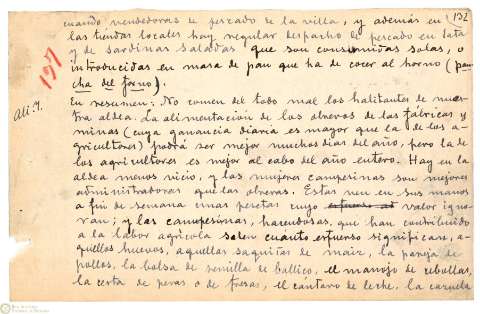 132
cuando vendedoras de pescado de la villa, y además en
las tiendas locales hay regular despacho de pescado en lata
y de sardinas saladas que son consumidas solas, o
introducidas en masa de pan que ha de cocer al horno (pan
cha del forno).
197
Ali. 7.
En resumen: No comen del todo mal los habitantes de nues-
tra aldea. La alimentación de los obreros de las fábricas y
minas (cuya ganancia diaria es mayor que la de los a-
gricultores) podrá ser mejor muchos dias del año, pero la de
los agricultores es mejor al cabo del año entero. Hay en la
aldea menos vicio, y las mujeres campesinas son mejores
administradoras que las obreras. Estas ven en sus manos
a fin de semana unas pesetas cuyo esfuerzo valor igno-
ran; y las campesinas, hacendosas, que han contribuido
a la labor agrícola saben cuánto esfuerzo significase, a-
quellos huevos, aquellas saquitas de maíz, la pareja de
pollos, la bolsa de semilla de ballico, el manojo de cebollas,
la cesta de peras o de fresas, el cántaro de leche, la cazuela